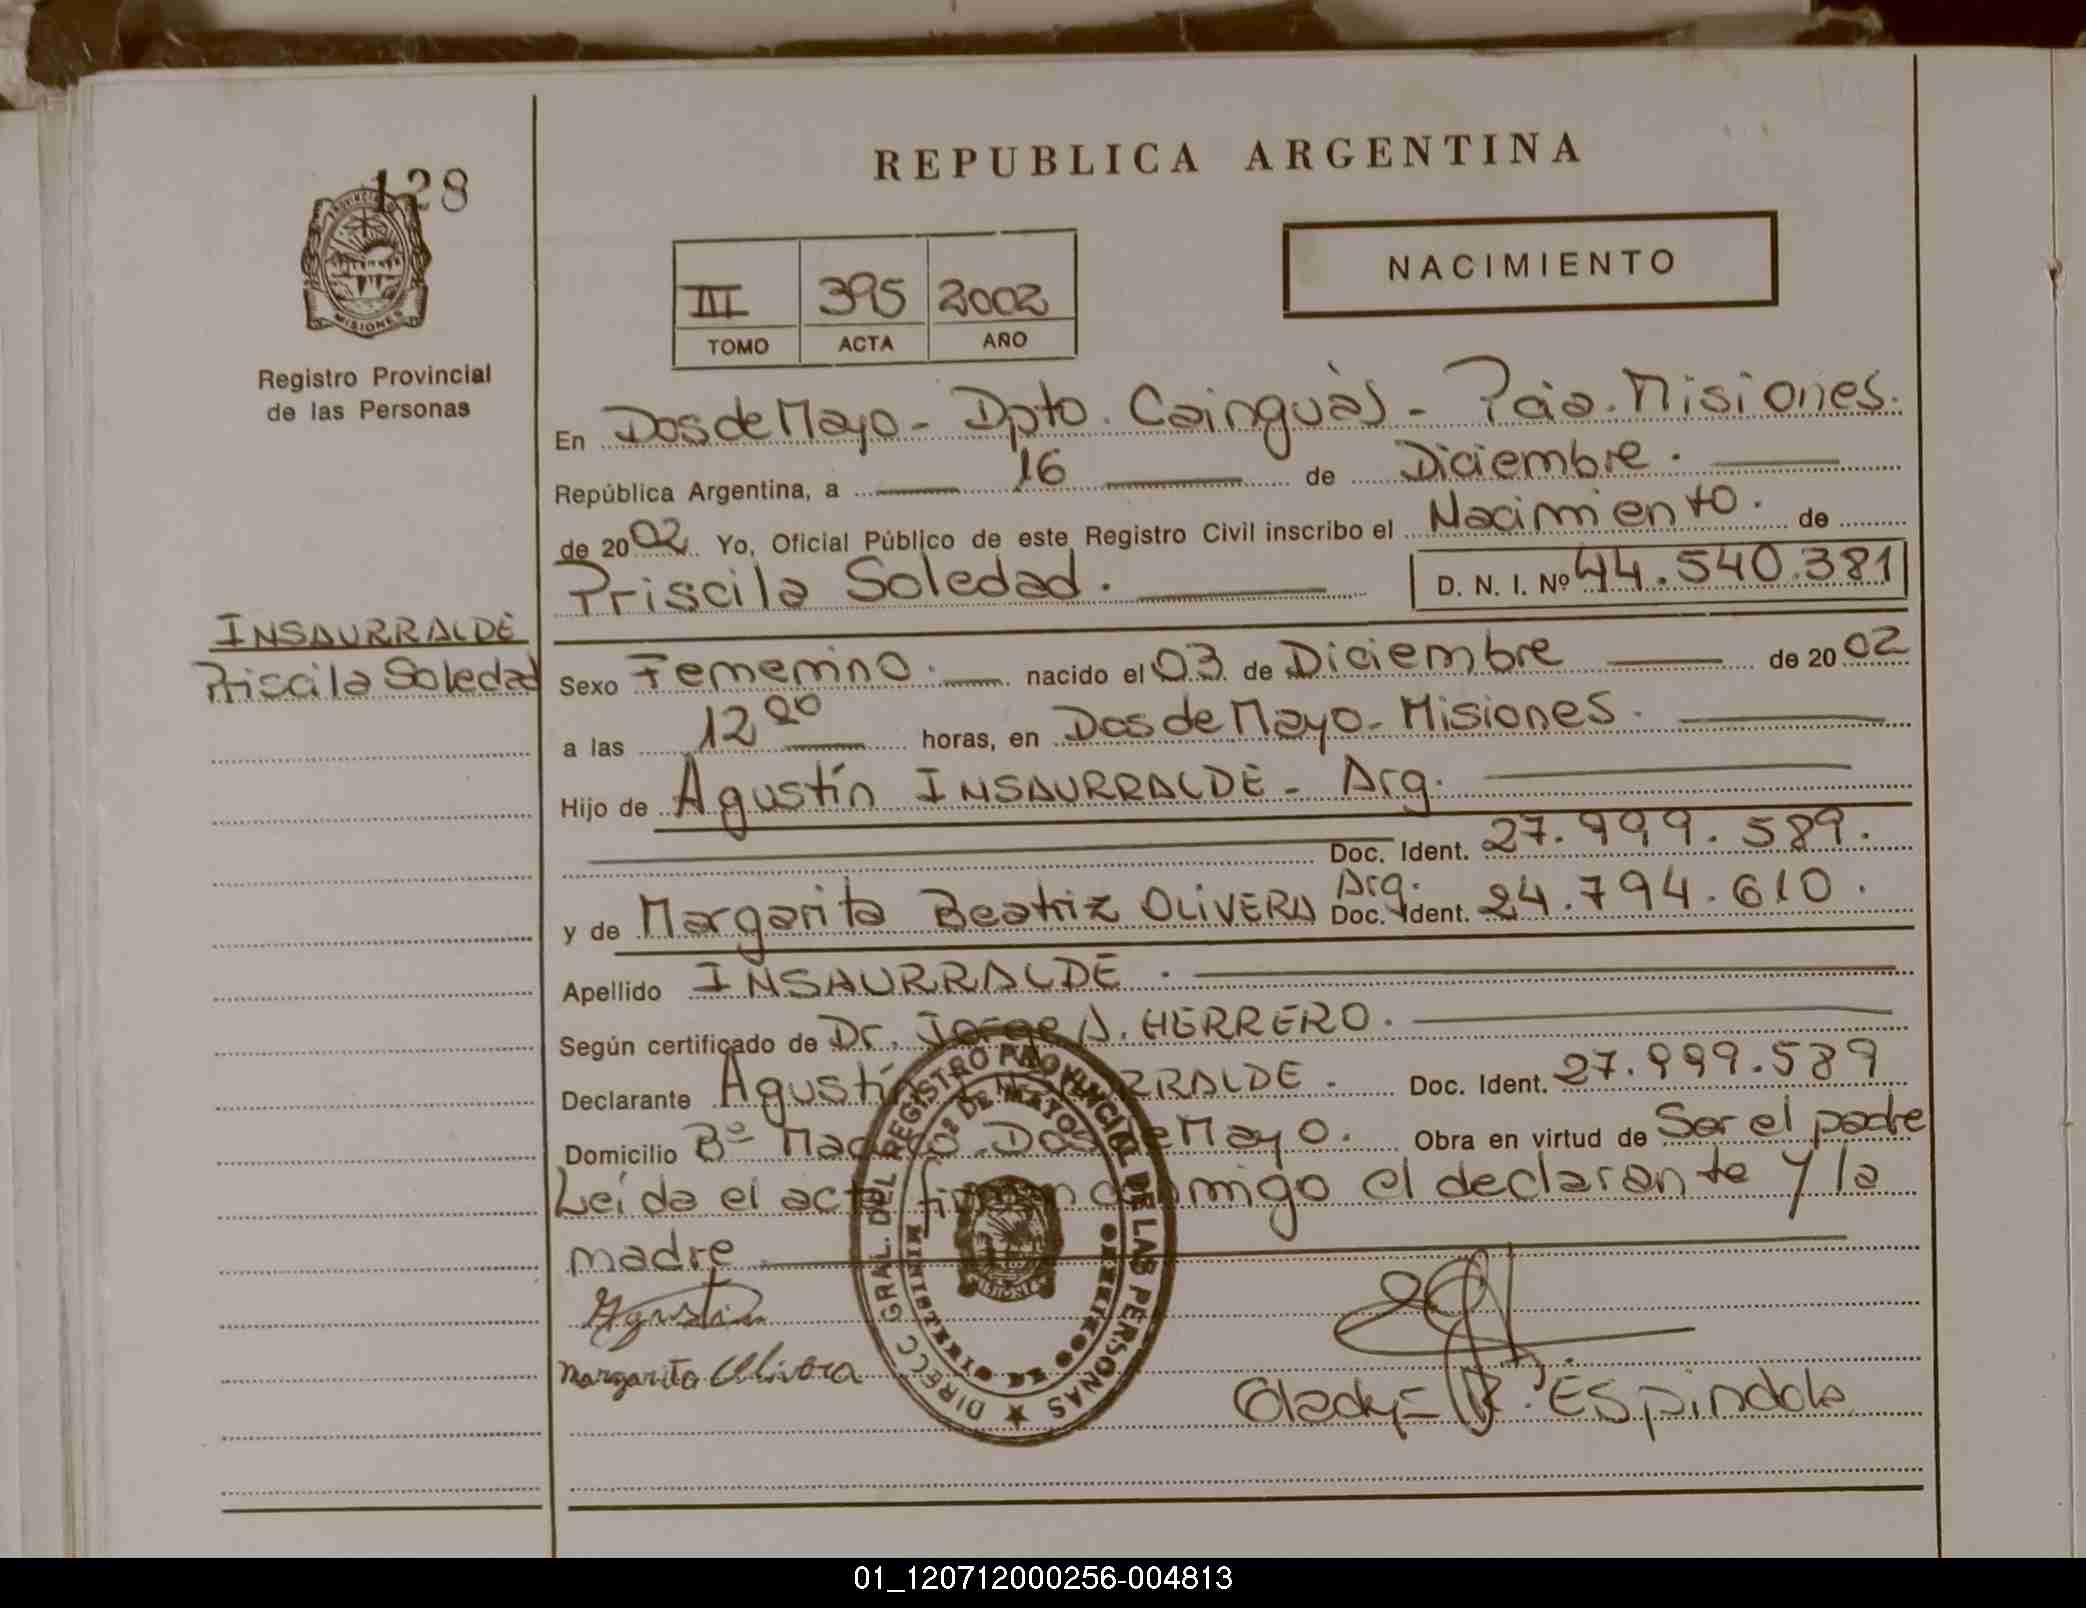 128
REPUBLICA ARGENTINA
PROVINCIA DE
MISIONES
Registro Provincial
de las Personas
NACIMIENTO
III 395 2002
TOMO ACTA AÑO
En Dos de Mayo - Dpto. Cainguàs - Pcia. Misiones.
República Argentina, a 16 de Diciembre.
de 2002 Yo, Oficial Público de este Registro Civil inscribo el Nacimiento. de
Priscila Soledad. D. N. I. Nº 44.540.381
INSAURRALDE
Priscila Soledad
Sexo Femenino. nacido el 03 de Diciembre de 2002
a las 12 00 horas, en Dos de Mayo - Misiones.
Hijo de Agustín INSAURRALDE - Arg.
Doc. Ident. 27.999.589.
y de Margarita Beatriz OLIVERA Arg. Doc. Ident. 24.794.610.
Apellido INSAURRALDE.
Según certificado de Dr. Jorge A. HERRERO.
Declarante Agustín RRALDE. Doc. Ident. 27.999.589
Domicilio Bº Dos de Mayo. Obra en virtud de Ser el padre
Leída el acta firman conmigo el declarante y la
madre
DIRECC GRAL. DEL REGISTRO PROVINCIAL DE LAS PERSONAS
DE MAYO
MISIONES
Agustin
Margarita Olivera
Gladys R. Espindola
01_120712000256-004813